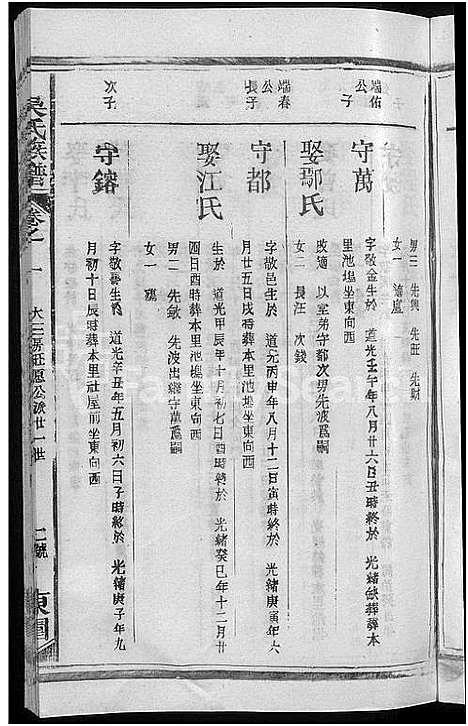 男三 先興 先旺 先勤
女一 適盧
端佑公子
守萬
字敬金生於 道光壬午年八月廿六日丑時終於 光緒 葬葬本
里池塢坐東向西
娶鄢氏
改適 以室弟守都次男先波爲嗣
女二 長汪 次錢
端春公長子
守都
字敬邑生於 道光丙申年八月十二日寅時終於 光緒庚寅年六
月廿五日戌時葬本里池塢坐東向西
娶江氏
生於 道光甲辰年十月初七日酉時終於 光緒癸巳年十二月廿
四日酉時葬本里池塢坐東向西
男二 先敏 先波出繼守萬爲嗣
女一 適
次子
守鎔
字敬 生於 道光辛丑年五月初六日子時終於 光緒庚子年九
月初十日辰時葬本里社屋前坐東向西
吳氏族譜 卷之一
大三房旺愿公派廿一世
二號
東園